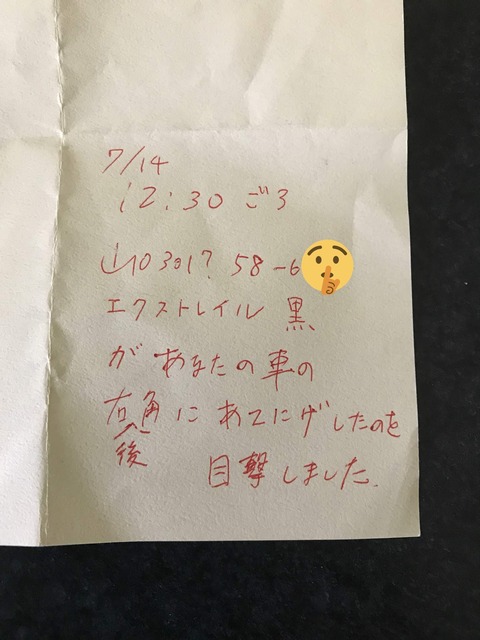 7/14
12:30 ごろ
山口 301? 58-6
エクストレイル 黒
が あなたの 車の
右後角 に あてにげしたのを
目撃しました.